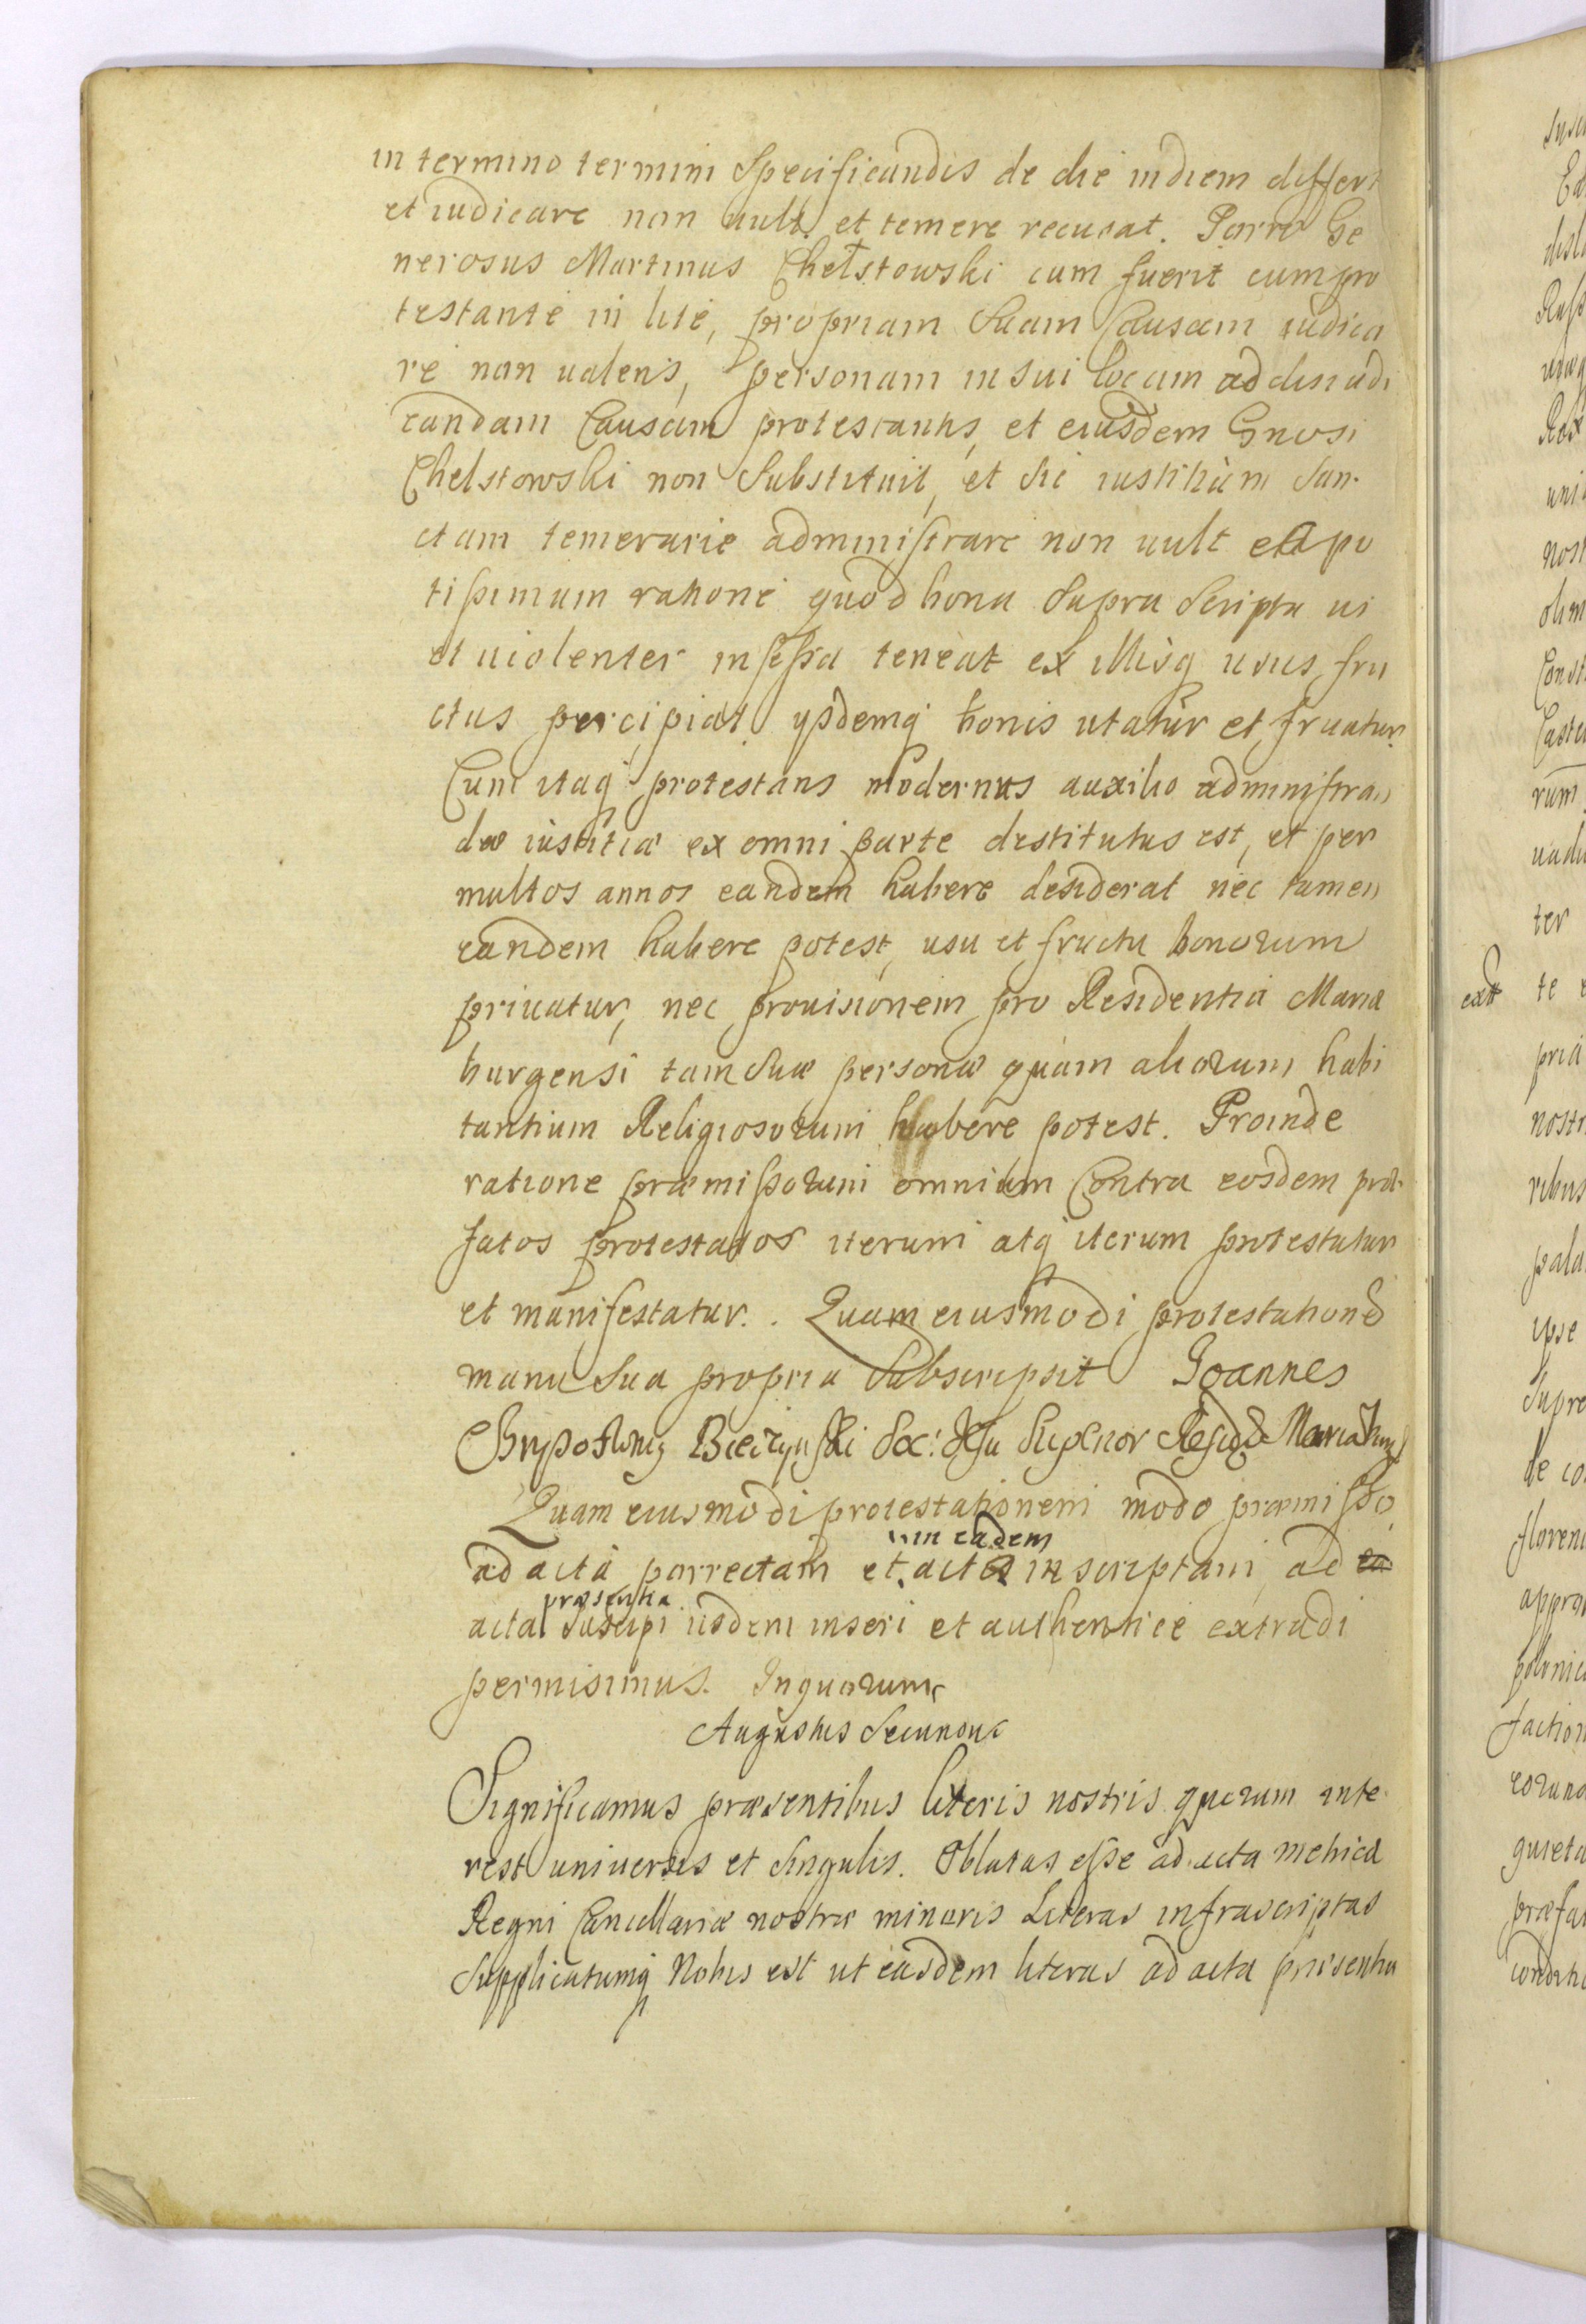 in termino termini Specificandis de die in diem differt
et iudicare non uult et temere recusat. Porro Ge
nerosus Martinus Chełstowski cum fuerit cum pro
testante in lite, propriam Suam Causam iudica
re non ualens, personam in sui locum ad disiudi
candam Causam protestantis, et eiusdem Gnosi
Chelstowski non Substituit, et sic iustitiam San-
ctam temerarie administrare non uult ea po
tißimum ratione quod bona Supra Scripta ui
et uiolenter inseßa teneat ex illisq usus fru
ctus percipiat ysdemq bonis utatur et fruatur
Cum itaq protestans modernus auxilio administran
dæ iustitiæ ex omni parte destitutus est, et per
multos annos eandem habere desiderat nec tamen
eandem habere potest, usu et fructu bonorum
priuatur, nec prouisionem pro Residentia Mariæ
burgensi tam Suæ personæ quam aliorum habi
tantium Religiosorum habere potest. Proinde
ratione præmißorum omnium Contra eosdem præ-
fatos protestatos iterum atq iterum protestatur
et manifestatur. . Quam eiusmodi protestationē
manu Sua propria Subscripsit Joannes
Chrysostomg Bieczyński Soc: Jesu Superior
Quam eiusmodi protestationem modo præmißo
in eadem
ad acta porrectam et acta inscriptam ad ea
præsentia
acta Suscipi iisdem inseri et authentice extradi
permisimus. In quorum
Augustus Secundus
Significamus præsentibus literis nostris quorum inte-
rest uniuersis et Singulis. Oblatas eße ad acta metrices
Regni Cancellariæ nostræ minoris Literas infrascriptas
Supplicatumq Nobis est ut easdem literas ad acta præsentia
extt